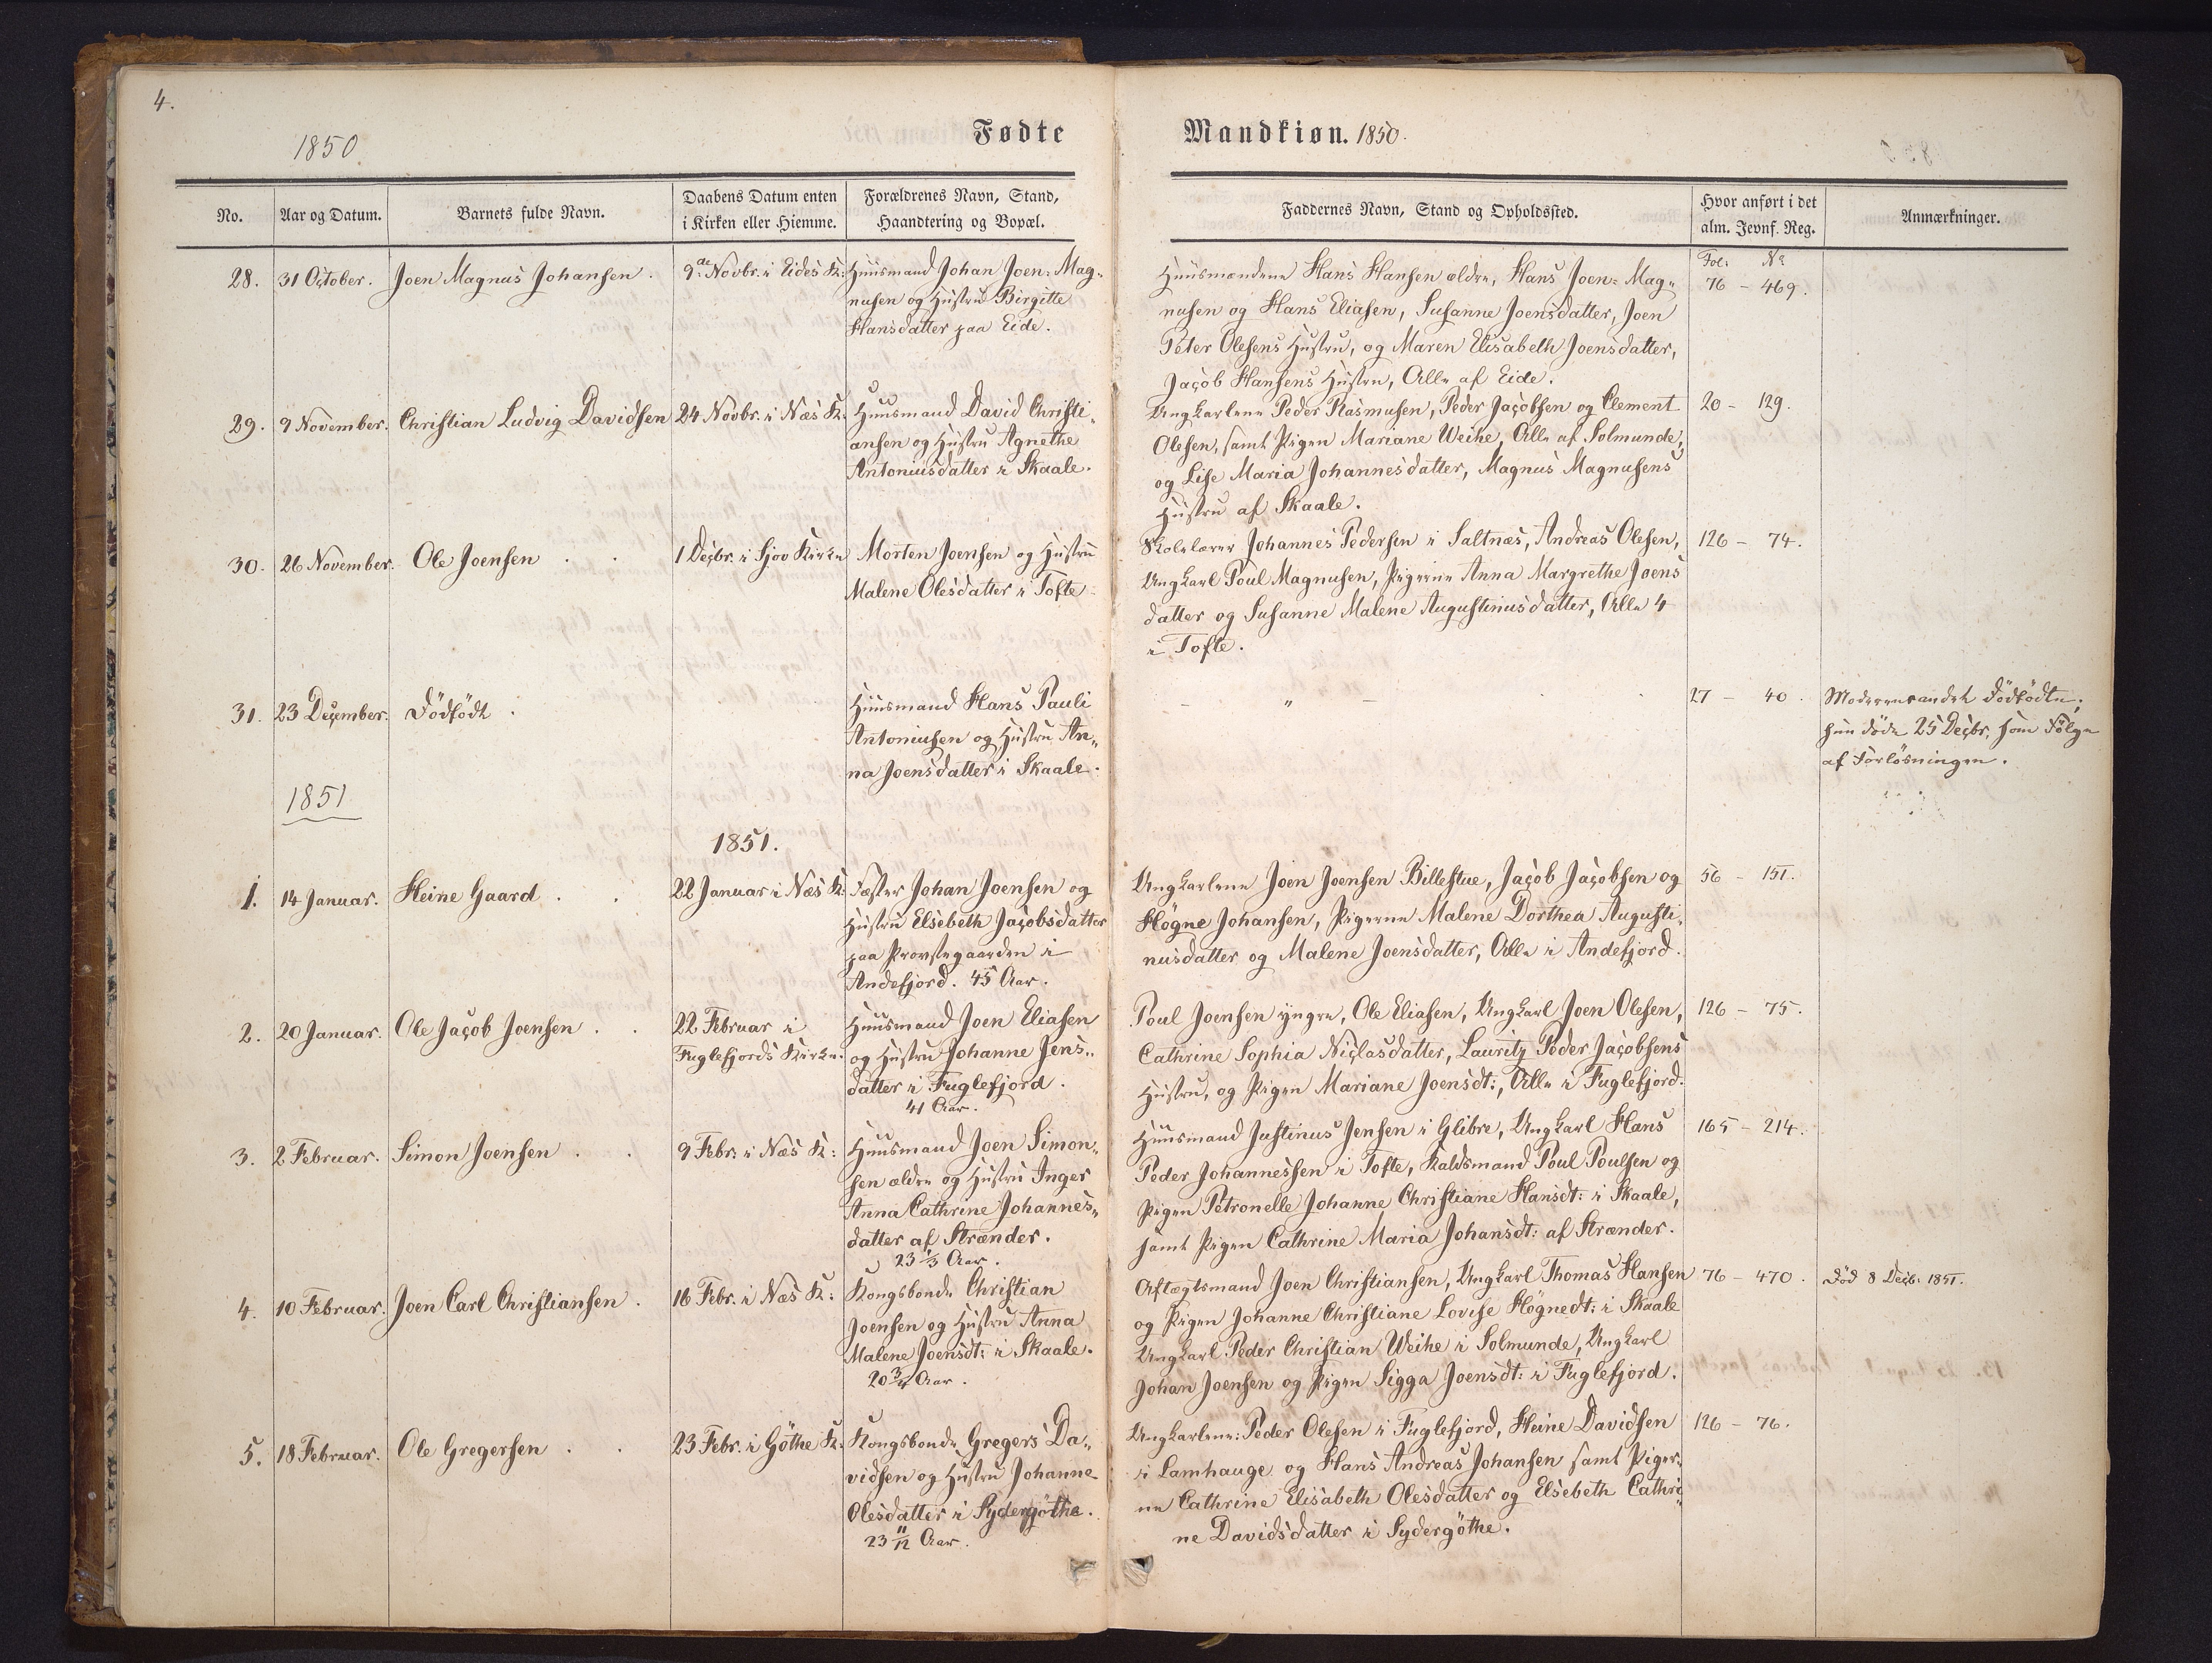 4.
1850
Fødte
Mandkiøn. 1850.
No.
Aar og Datum.
Barnets fulde Navn.
Daabens Datum enten
i Kirken eller Hiemme.
Forældrenes Navn, Stand,
Haandtering og Bopæl.
Faddernes Navn, Stand og Opholdssted.
Hvor anført i det
alm. Jevnf. Reg.
Anmærkninger.
28. 31 October. Joen Magnus Johansen.
9de Novbr. i Eides K:
Huusmand Johan Joen= Mag„
nusen og Hustru Birgitte
Hansdatter paa Eide.
Huusmændene Hans Hansen ældre, Hans Joen= Mag„
nusen og Hans Eliasen, Susanne Joensdatter, Joen
Peter Olesens Hustru, og Maren Elisabeth Joensdatter,
Jacob Hansens Hustru, Alle af Eide.
Fol: No
76 - 469.
29. 9 November. Christian Ludvig Davidsen
24 Novbr. i Næs K.
Huusmand David Christi„
ansen og Hustru Agnethe
Antoniusdatter i Skaale.
Ungkarlene Peder Rasmusen, Peder Jacobsen og Clement
Olesen, samt Pigen Mariane Weihe, Alle af Solmunde,
og Lise Maria Johannesdatter, Magnus Magnusens
Hustru af Skaale.
20 - 129.
30. 26 November. Ole Joensen
1 Decbr. i Sjov Kirke
Morten Joensen og Hustru
Malene Olesdatter i Tofte.
Skolelærer Johannes Pedersen i Saltnæs, Andreas Olesen,
Ungkarl Poul Magnusen, Pigerne Anna Margrethe Joens
datter og Susanne Malene Augustinusdatter, Alle 4
i Tofte.
126 - 74.
31. 23 December. Dödfödt.
Huusmand Hans Pauli
Antoniusen og Hustru An„
na Joensdatter i Skaale.
- „ -
27 - 40.
Moderens andet Dödfödte;
hun döde 25 Decbr. som Fölge
af Forlösningen.
1851
1851.
1. 14 Januar. Heine Gaard.
22 Januar i Næs K:
Fæster Johan Joensen og
Hustru Elsebeth Jacobsdatter
paa Provstegaarden i
Andefjord. 45 Aar.
Ungkarlene Joen Joensen Billestue, Jacob Jacobsen og
Högne Johansen, Pigerne Malene Dorthea Augusti„
nusdatter og Malene Joensdatter, Alle i Andefjord.
56 - 151.
2. 20 Januar. Ole Jacob Joensen.
22 Februar i
Fuglefjords Kirke.
Huusmand Joen Eliasen
og Hustru Johanne Jens„
datter i Fuglefjord.
41 Aar.
Poul Joensen yngre, Ole Eliasen, Ungkarl Joen Olesen,
Cathrine Sophia Niclasdatter, Lauritz Peder Jacobsens
Hustru, og Pigen Mariane Joensdt:, Alle i Fuglefjord.
126 - 75.
3. 2 Februar. Simon Joensen.
9 Febr. i Næs K:
Huusmand Joen Simon„
sen ældre og Hustru Inger
Anna Cathrine Johannes„
datter af Strænder.
23 1/3 Aar.
Huusmand Justinus Jensen i Glibre, Ungkarl Hans
Peder Johannessen i Tofte, Kaldsmand Poul Poulsen og
Pigen Petronelle Johanne Christiane Hansdt: i Skaale,
samt Pigen Cathrine Maria Johansdt: af Strænder.
165 - 214.
4. 10 Februar. Joen Carl Christiansen.
16 Febr. i Næs K:
Kongsbonde Christian
Joensen og Hustru Anna
Malene Joensdt: i Skaale.
20 3/4 Aar.
Aftægtsmand Joen Christiansen, Ungkarl Thomas Hansen
og Pigen Johanne Christiane Lovise Högnedt: i Skaale
Ungkarl Peder Christian Weihe i Solmunde, Ungkarl
Johan Joensen og Pigen Sigga Joensdt: i Fuglefjord.
76 - 470.
Död 8 Decb: 1851.
5. 18 Februar. Ole Gregersen.
23 Febr. i Göthe K.
Kongsbonde Gregers Da„
vidsen og Hustru Johanne
Olesdatter i Sydergöthe.
23 11/12 Aar.
Ungkarlene: Peder Olesen i Fuglefjord, Heine Davidsen
i Lamhauge og Hans Andreas Johansen samt Piger„
ne Cathrine Elisabeth Olesdatter og Elsebeth Cathri„
ne Davidsdatter i Sydergöthe.
126 - 76.